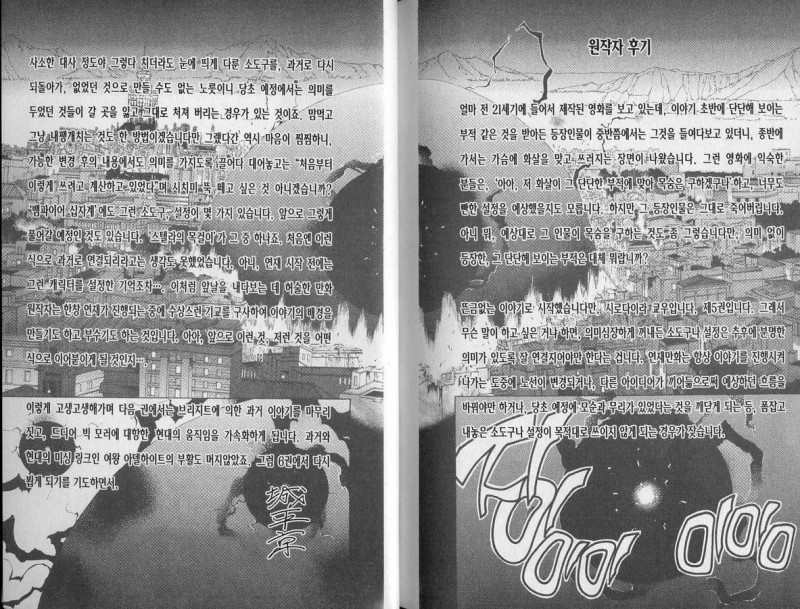 원작자 후기
얼마 전 21세기에 들어서 제작된 영화를 보고 있는데, 이야기 초반에 단단해 보이는
부적 같은 것을 받아든 등장인물이 중반쯤에서는 그것을 들여다보고 있더니, 종반에
가서는 가슴에 화살을 맞고 쓰러지는 장면이 나왔습니다. 그런 영화에 익숙한
분들은, '아아, 저 화살이 그 단단한 부적에 맞아 목숨은 구하겠구나' 하고, 너무도
뻔한 설정을 예상했을지도 모릅니다. 하지만, 그 등장인물은 그대로 죽어버립니다.
아니 뭐, 예상대로 그 인물이 목숨을 구하는 것도 좀 그렇습니다만, 의미 없이
등장한, 그 단단해 보이는 부적은 대체 뭐랍니까?
뜬금없는 이야기로 시작했습니다만, 시로다이라 쿄우입니다. 제5권입니다. 그래서
무슨 말이 하고 싶은 거냐 하면, 의미심장하게 꺼내든 소도구나 설정은 추후에 분명한
의미가 있도록 잘 연결지어야만 한다는 겁니다. 연재만화는 항상 이야기를 진행시켜
나가는 도중에 노선이 변경되거나, 다른 아이디어가 끼어듦으로써 예상하던 흐름을
바꿔야만 하거나, 당초 예정에 모순과 무리가 있었다는 것을 깨닫게 되는 등, 폼잡고
내놓은 소도구나 설정이 목적대로 쓰이지 않게 되는 경우가 잦습니다.
사소한 대사 정도야 그렇다 치더라도 눈에 띄게 다룬 소도구를, 과거로 다시
되돌아가, 없었던 것으로 만들 수도 없는 노릇이니 당초 예정에서는 의미를
두었던 것들이 갈 곳을 잃고 그대로 처져 버리는 경우가 있는 것이죠. 맘먹고
그냥 내팽개치는 것도 한 방법이겠습니다만, 그랬다간 역시 마음이 찜찜하니,
가능한 변경 후의 내용에서도 의미를 가지도록 끌어다 대어놓고는 "처음부터
이렇게 쓰려고 계산하고 있었다"며 시치미 뚝 떼고 싶은 것 아니겠습니까?
'뱀파이어 십자계'에도 그런 소도구, 설정이 몇 가지 있습니다. 앞으로 그렇게
풀어갈 예정인 것도 있습니다. '스텔라의 목걸이'가 그 중 하나죠. 처음엔 이런
식으로 과거로 연결되리라고는 생각도 못했었습니다. 아니, 연재 시작 전에는
그런 캐릭터를 설정한 기억조차…. 이처럼 앞날을 내다보는 데 허술한 만화
원작자는 한창 연재가 진행되는 중에 수상스런 기교를 구사하여 이야기의 배경을
만들기도 하고 부수기도 하는 것입니다. 아아, 앞으로 이런 것, 저런 것을 어떤
식으로 이어붙이게 될 것인지….
이렇게 고생고생해가며 다음 권에서는 브리지트에 의한 과거 이야기를 마무리
짓고, 드디어 빅 모러에 대항한 현대의 움직임을 가속화하게 됩니다. 과거와
현대의 미싱 링크인 여왕 아델하이트의 부활도 머지않았죠. 그럼 6권에서 다시
뵙게 되기를 기도하면서.
城平京